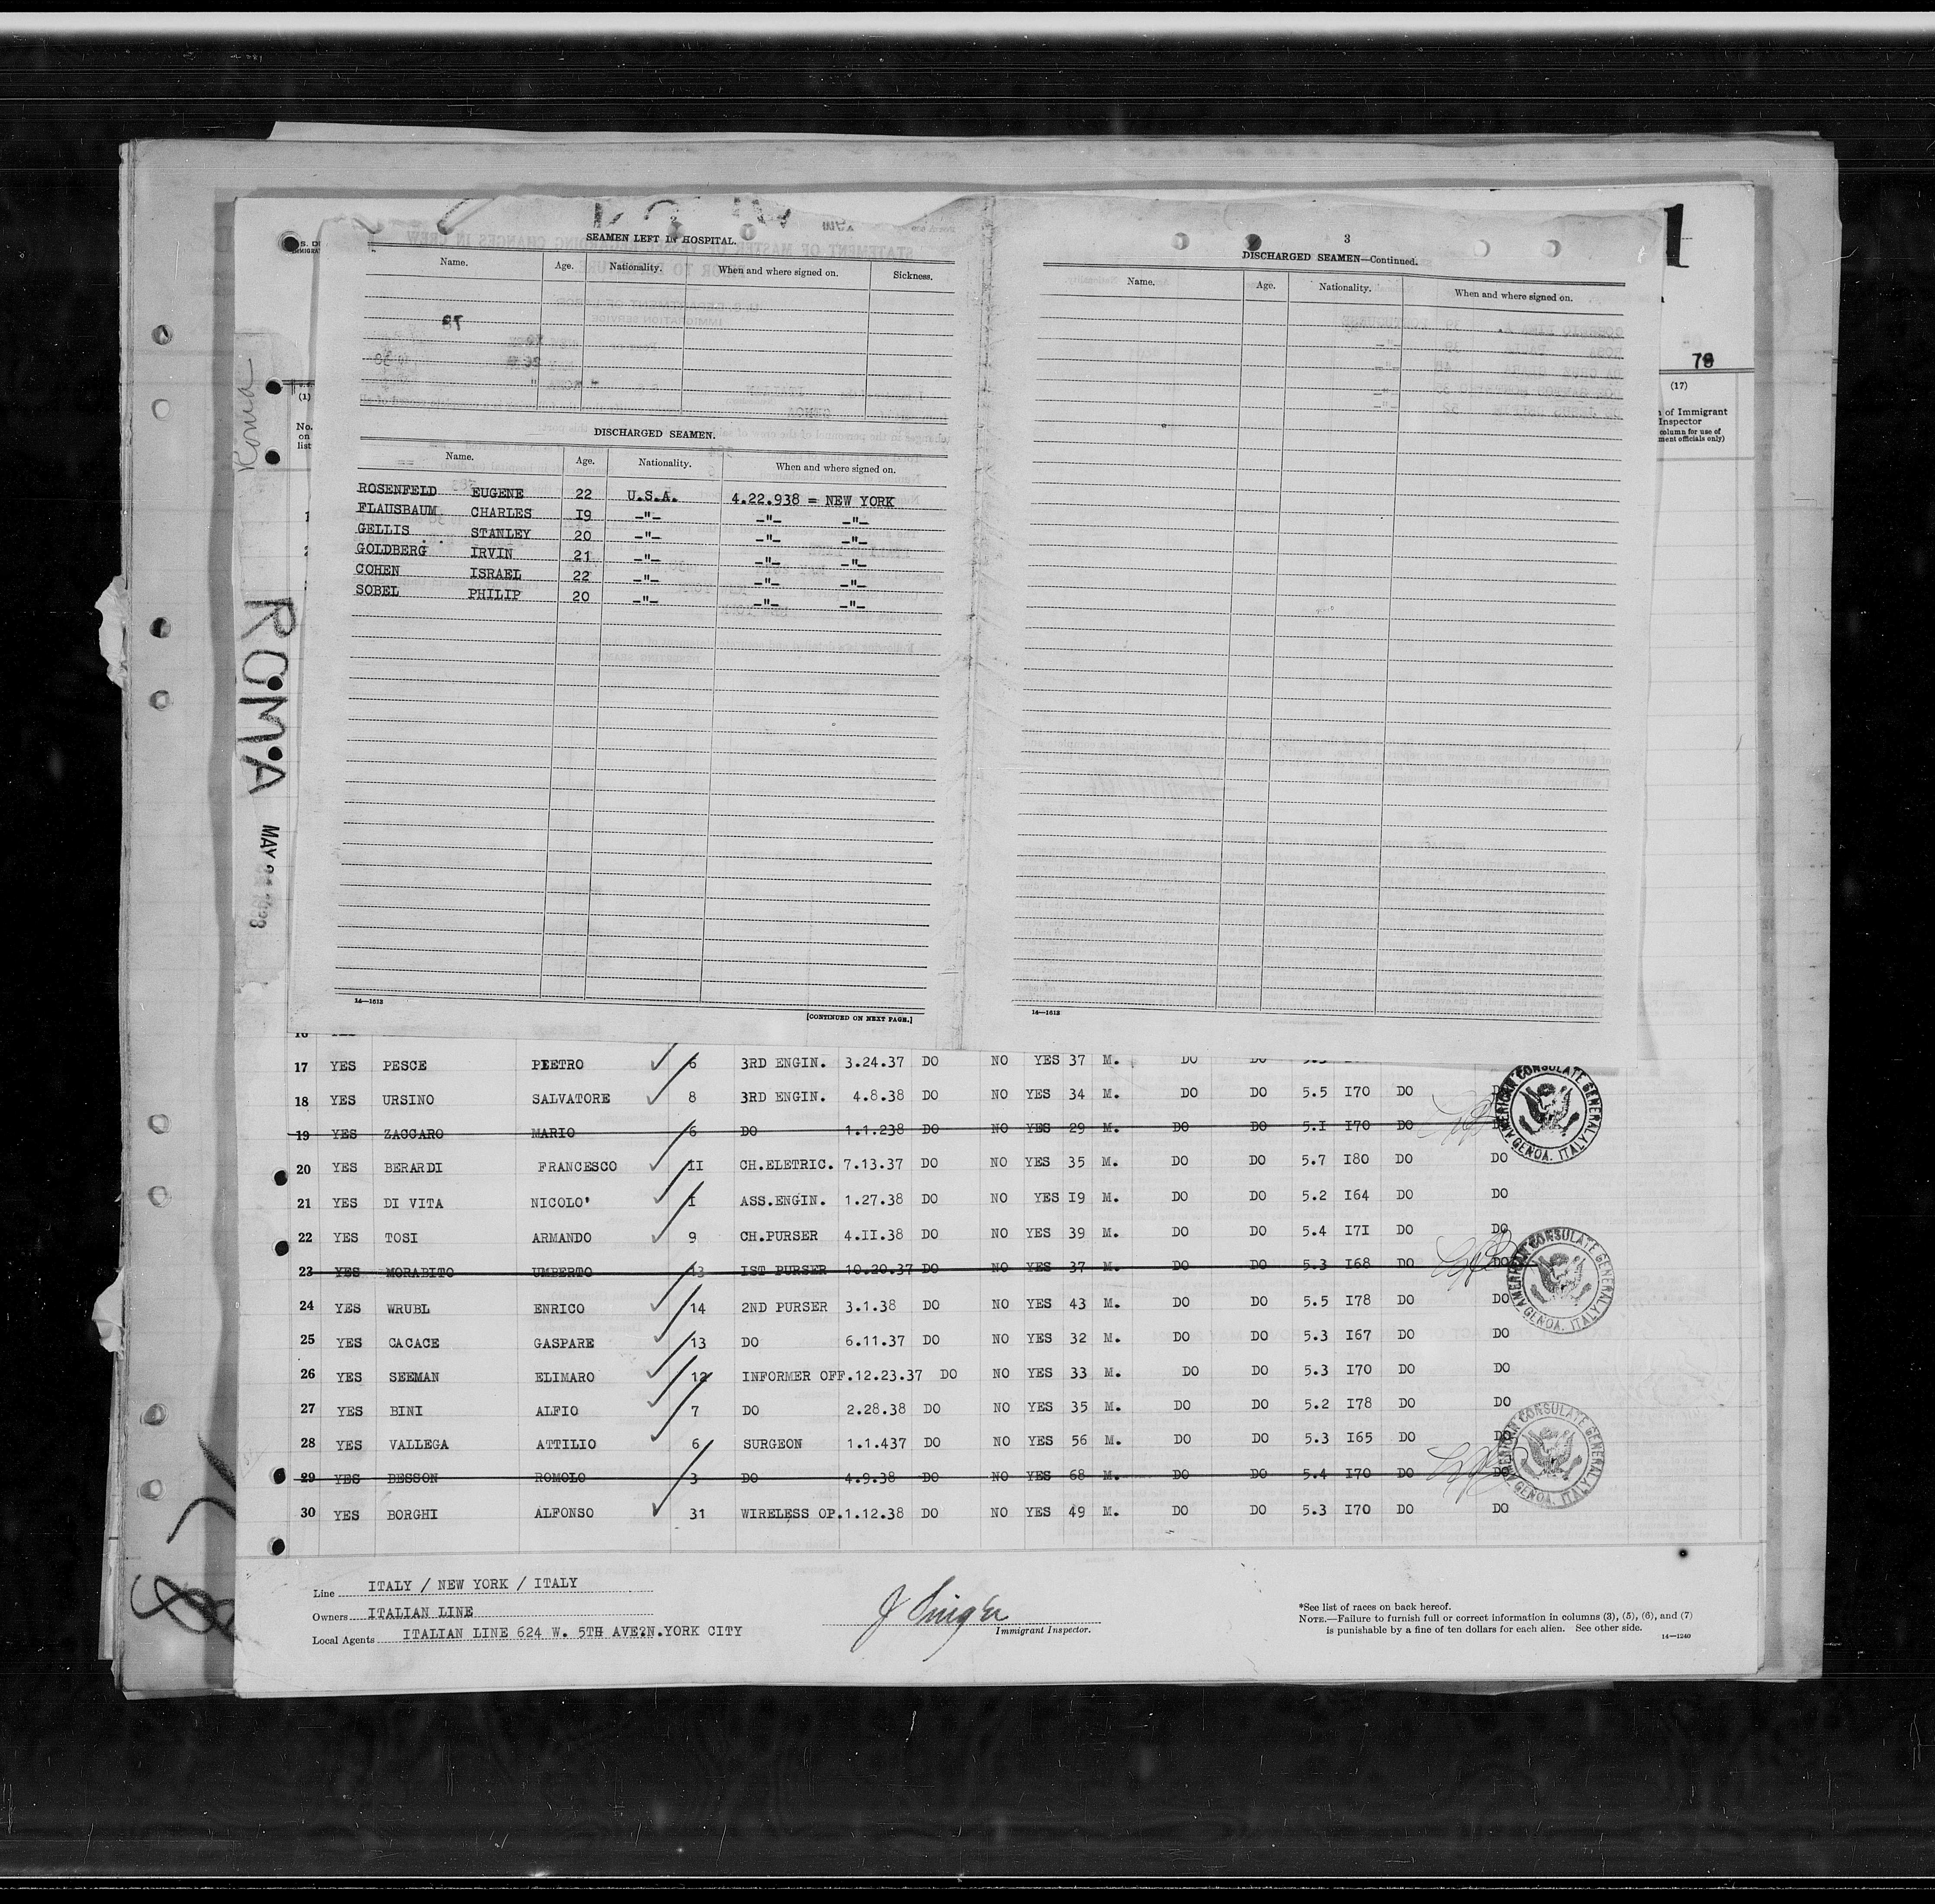 SEAMEN LEFT IN HOSPITAL.
Name. Age. Nationality. When and where signed on. Sickness.
DISCHARGED SEAMEN.
Name. Age. Nationality. When and where signed on.
ROSENFELD EUGENE 22 U.S.A. 4.22.938 = NEW YORK
FLAUSBAUM CHARLES I9 -"- -"- -"-
GELLIS STANLEY 20 -"- -"- -"-
GOLDBERG IRVIN 21 -"- -"- -"-
COHEN ISRAEL 22 -"- -"- -"-
SOBEL PHILIP 20 -"- -"- -"-
14—1613
[CONTINUED ON NEXT PAGE.]
3
DISCHARGED SEAMEN—Continued.
Name. Age. Nationality. When and where signed on.
14—1613
1
78
(17)
of Immigrant
Inspector
column for use of
ment officials only)
(1)
No.
on
list
Roma
ROMA
MAY
17 YES PESCE PIETRO 6 3RD ENGIN. 3.24.37 DO NO YES 37 M. DO DO
18 YES URSINO SALVATORE 8 3RD ENGIN. 4.8.38 DO NO YES 34 M. DO DO 5.5 I70 DO DO
19 YES ZACCARO MARIO 6 DO 1.1.238 DO NO YES 29 M. DO DO 5.I I70 DO DO
20 YES BERARDI FRANCESCO II CH.ELETRIC. 7.13.37 DO NO YES 35 M. DO DO 5.7 I80 DO DO
21 YES DI VITA NICOLO' I ASS.ENGIN. 1.27.38 DO NO YES I9 M. DO DO 5.2 I64 DO DO
22 YES TOSI ARMANDO 9 CH.PURSER 4.II.38 DO NO YES 39 M. DO DO 5.4 I7I DO DO
23 YES MORABITO UMBERTO 13 IST PURSER 10.20.37 DO NO YES 37 M. DO DO 5.3 I68 DO DO
24 YES WRUBL ENRICO 14 2ND PURSER 3.1.38 DO NO YES 43 M. DO DO 5.5 I78 DO DO
25 YES CACACE GASPARE 13 DO 6.11.37 DO NO YES 32 M. DO DO 5.3 I67 DO DO
26 YES SEEMAN ELIMARO 12 INFORMER OFF.12.23.37 DO NO YES 33 M. DO DO 5.3 I70 DO DO
27 YES BINI ALFIO 7 DO 2.28.38 DO NO YES 35 M. DO DO 5.2 I78 DO DO
28 YES VALLEGA ATTILIO 6 SURGEON 1.1.437 DO NO YES 56 M. DO DO 5.3 I65 DO DO
29 YES BESSON ROMOLO 3 DO 4.9.38 DO NO YES 68 M. DO DO 5.4 I70 DO DO
30 YES BORGHI ALFONSO 31 WIRELESS OP.1.12.38 DO NO YES 49 M. DO DO 5.3 I70 DO DO
AMERICAN CONSULATE GENERAL GENOA, ITALY
AMERICAN CONSULATE GENERAL GENOA, ITALY
AMERICAN CONSULATE GENERAL GENOA, ITALY
Line ITALY / NEW YORK / ITALY
Owners ITALIAN LINE
Local Agents ITALIAN LINE 624 W. 5TH AVE?N.YORK CITY
J Singer
Immigrant Inspector.
*See list of races on back hereof.
NOTE.—Failure to furnish full or correct information in columns (3), (5), (6), and (7)
is punishable by a fine of ten dollars for each alien. See other side.
14—1240